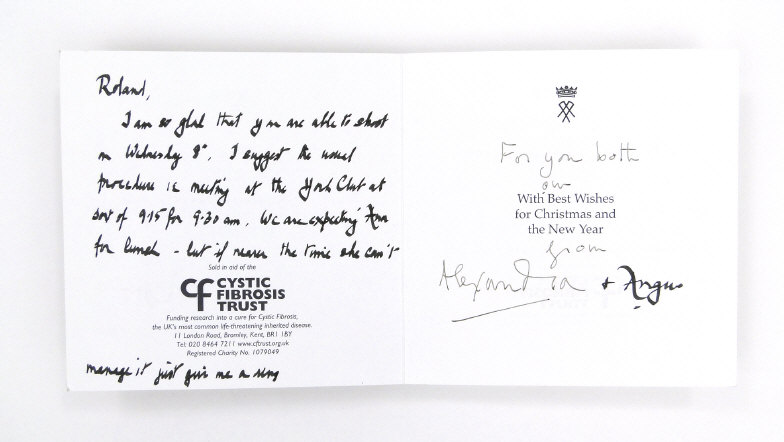 Roland,
I am so glad that you are able to shoot
on Wednesday 8th. I suggest the usual
procedure ie meeting at the York Club at
sort of 9.15 for 9.30 am. We are expecting
for lunch - but if nearer the time she can't
Sold in aid of the
CF CYSTIC
FIBROSIS
TRUST
Funding research into a cure for Cystic Fibrosis,
the UK's most common life-threatening inherited disease.
11 London Road, Bromley, Kent, BR1 1BY
Tel: 020 8464 7211 www.cftrust.org.uk
Registered Charity No. 1079049
manage it just give me a ring
For you both
our
With Best Wishes
for Christmas and
the New Year
from
Alexandra + Angus